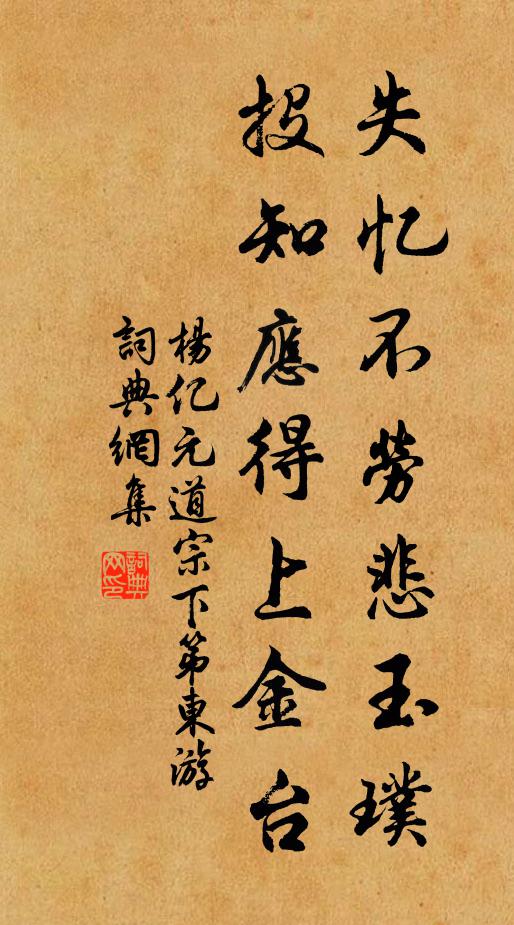 失忆不勞悲玉璞
投知應得上金台
楊亿元道宗下第東游
詞典網集
詞典
网印